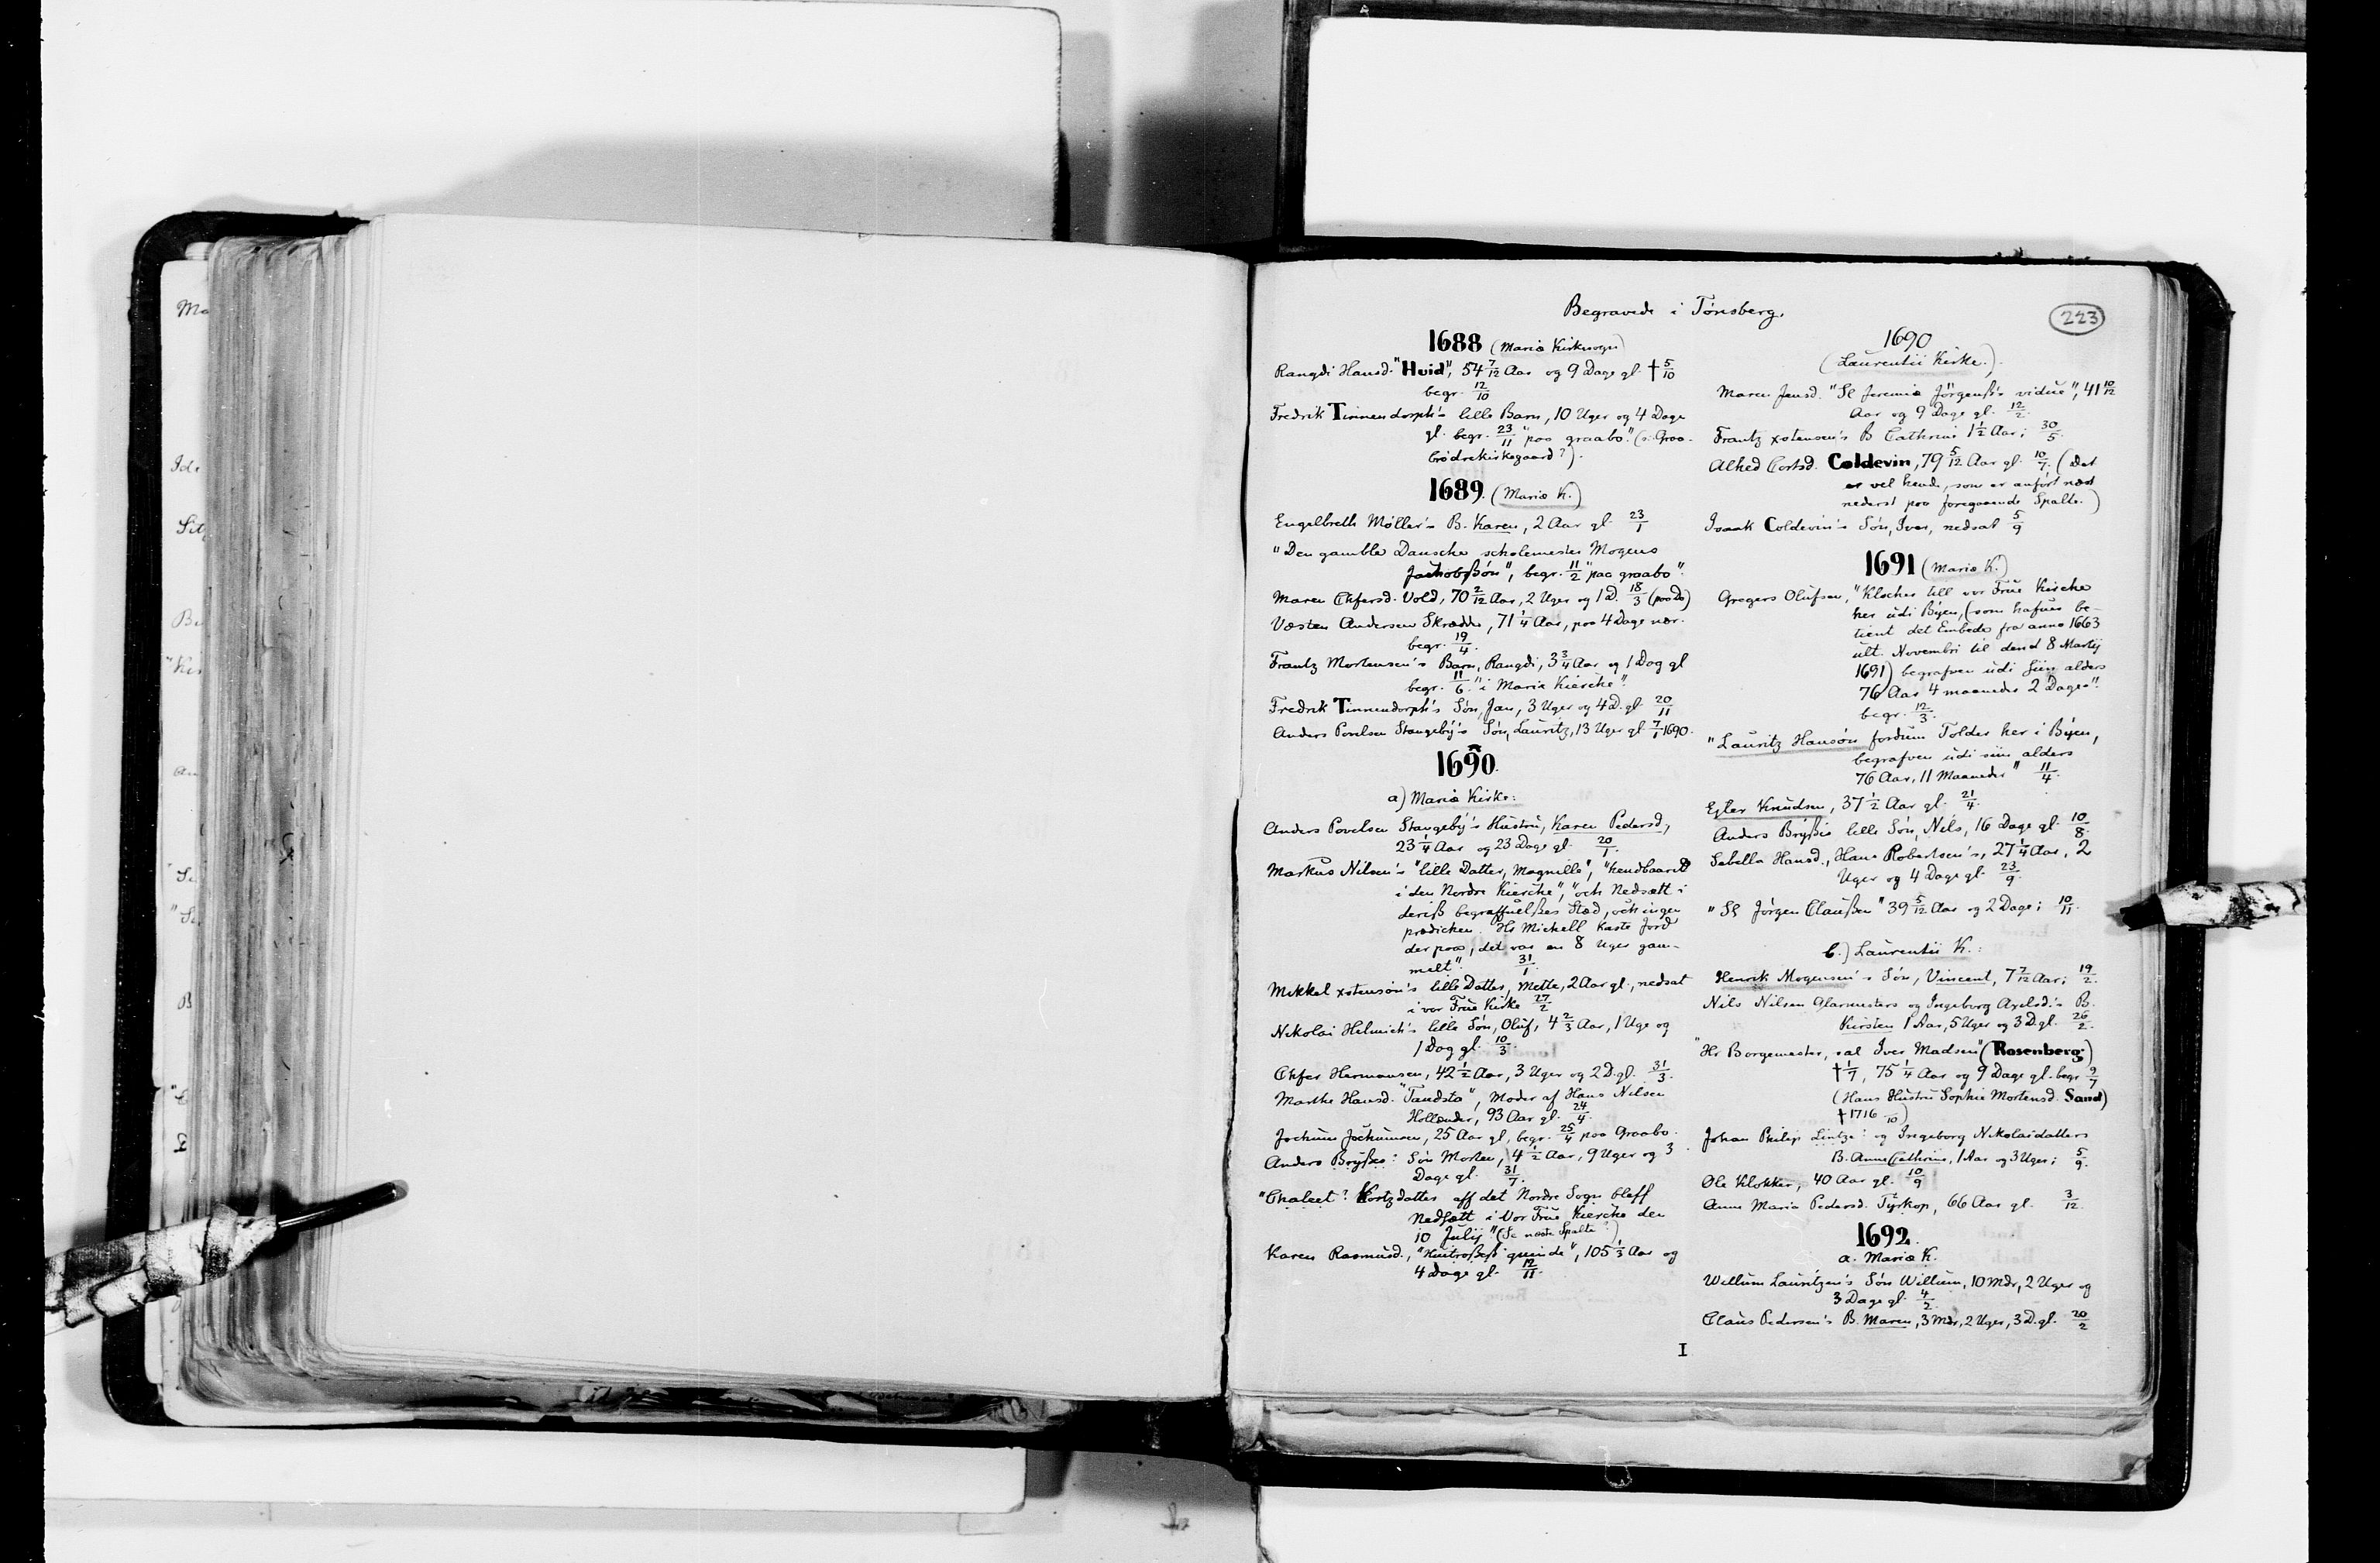 Begravede i Tönsberg.
223
1688 (Mariæ Kirkesogn)
Rangdi Hansd. "Hvid", 54 7/12 Aar og 9 Dage gl. † 5/10
begr. 12/10
Fredrik Tinnendorph's lille Barn, 10 Uger og 4 Dage
gl. begr. 23/11 "paa graabo". (ɔ: Graa-
brödrekirkegaard?).
1689. (Mariæ K.)
Engelbreth Møller's B. Karen, 2 Aar gl. 23/1
"Den gamble Dansche scholemester Mogens
Jachobßön", begr. 11/2 "paa graabo".
Maren Chfersd. Vold, 70 2/12 Aar, 2 Uger og 1 D. 18/3 (paa Do)
Væsten Andersen Skrædder, 71 1/4 Aar, paa 4 Dage nær.
begr. 19/4.
Frantz Mortensen's Barn, Rangdi, 3 3/4 Aar og 1 Dag gl
begr. 11/6. "i Maria Kiercke".
Fredrik Tinnendorph's Sön, Jan, 3 Uger og 4 D. gl. 20/11
Anders Povelsen Stangeby's Sön, Lauritz, 13 Uger gl. 7/1 1690.
1690.
a) Mariæ Kirke:
Anders Povelsen Stangeby's Hustru, Karen Pedersd,
23 1/4 Aar og 23 Dage gl. 20/1.
Markus Nilsen's "lille Datter, Magnille", "hendbaaret
i den Nordre Kiercke", "och Nedsætt i
deriß begraffuelßes Stæd, och ingen
prædicken. Hr Mickell kaste Jord
der paa, det var en 8 Uger gam-
melt". 31/1.
Mikkel xstensön's lille Datter, Mette, 2 Aar gl., nedsat
i vor Frue Kirke 27/2
Nikolai Helmich's lille Sön, Oluf, 4 2/3 Aar, 1 Uge og
1 Dag gl. 10/3
Chfer Hermansen, 42 1/2 Aar, 3 Uger og 2 D. gl. 31/3.
Marthe Hansd. "Tandsta", Moder af Hans Nilsen
Hollænder, 93 Aar gl. 24/4.
Jochum Jochumsen, 25 Aar gl, begr. 25/4 paa Graabo.
Anders Bryßes: Sön Morten, 4 1/2 Aar, 9 Uger og 3
Dage gl. 31/7.
"Chaleet? Kortzdatter aff det Nordre Sogn bleff
Nedsætt i Vor Frue Kiercke den
10 Julij" (Se næste Spalte?)
Karen Rasmusd., quinde", 105 1/3 Aar og
4 Dage gl. 12/11.
1690
(Laurentii Kirke.)
Maren Jensd. "Sl Jeremiæ Jörgenß's vidue", 41 10/12
Aar og 9 Dage gl. 12/2.
Frantz xstensen's B Cathrine 1 1/2 Aar; 30/5.
Alhed Cortsd. Coldevin, 79 5/12 Aar gl. 10/7. (Det
er vel hende, som er anfört næst
nederst paa foregaaende Spalte.)
Isaak Coldevin's Sön, Iver, nedsat 5/9
1691 (Mariæ K.)
Gregers Olufsen, "Klocker till vor Frue Kircke
her udi Byen, (som hafuer be-
tient det Embede fra anno 1663
ult. Novembri til dend 8 Martij
1691) begrafven udi siin alders
76 Aar 4 maaneder 2 Dages".
begr. 12/3.
"Lauritz Hansön fordum Tolder her i Byen,
begrafven udi siin alders
76 Aar, 11 Maaneder" 11/4.
Knudsen, 37 1/2 Aar gl. 21/4.
Anders Bryßis lille Sön, Nils, 16 Dage gl. 10/8.
Sebella Hansd., Hans Robertsen's, 27 1/4 Aar, 2
Uger og 4 Dage gl. 23/9.
"Sl Jörgen Claußen" 39 5/12 Aar og 2 Dage; 10/11.
b.) Laurentii K.:
Henrik Mogensen's Sön, Vincent, 7 7/12 Aar; 19/2.
Nils Nilsen Glarmesters og Ingeborg Axelsd's B.
Kirsten 1 Aar, 5 Uger og 3 D. gl. 26/2.
"Hr Borgemester, sal Iver Madsen" (Rosenberg)
† 1/7, 75 1/4 Aar og 9 Dage gl. begr. 9/7
(Hans Hustru Sophie Mortensd. Sand)
† 1716 /10)
Johan Philip Lintze: og Ingeborg Nikolaidatters
B. Anne Cathrine, 1 Aar og 3 Uger; 5/9.
Ole Klokker, 40 Aar gl. 10/9
Anne Maria Pedersd. Tyrkop, 66 Aar gl. 3/12.
1692.
a. Mariæ K.
Willum Lauritzen's Sön Willum, 10 Mdr, 2 Uger og
3 Dage gl. 4/2.
Claus Pedersen's B. Maren, 3 Mdr, 2 Uger, 3 D. gl. 20/2
I